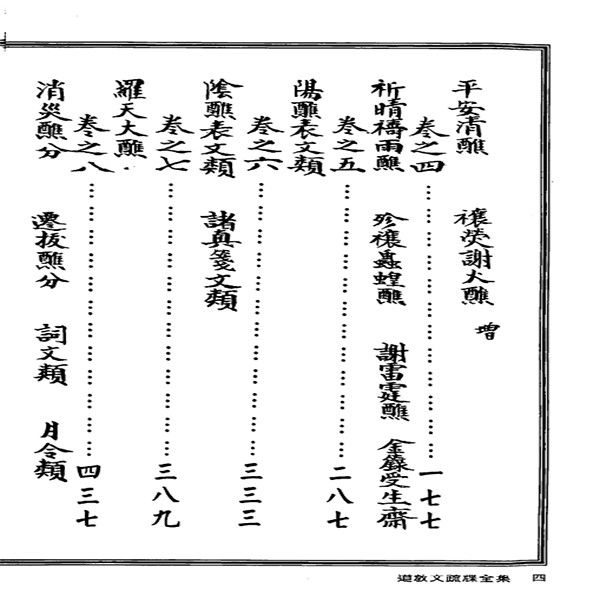 平安清醮 禳熒謝火醮 增
卷之四……………………………一七七
祈晴禱雨醮 殄禳蟲蝗醮 謝雷霆醮 金籙受生齋
卷之五……………………………二八七
陽醮表文類
卷之六……………………………三三三
陰醮表文類 諸真箋文類
卷之七……………………………三八九
羅天大醮
卷之八……………………………四三七
消災醮分 遷拔醮分 詞文類 月令類
道教文疏牒全集 四